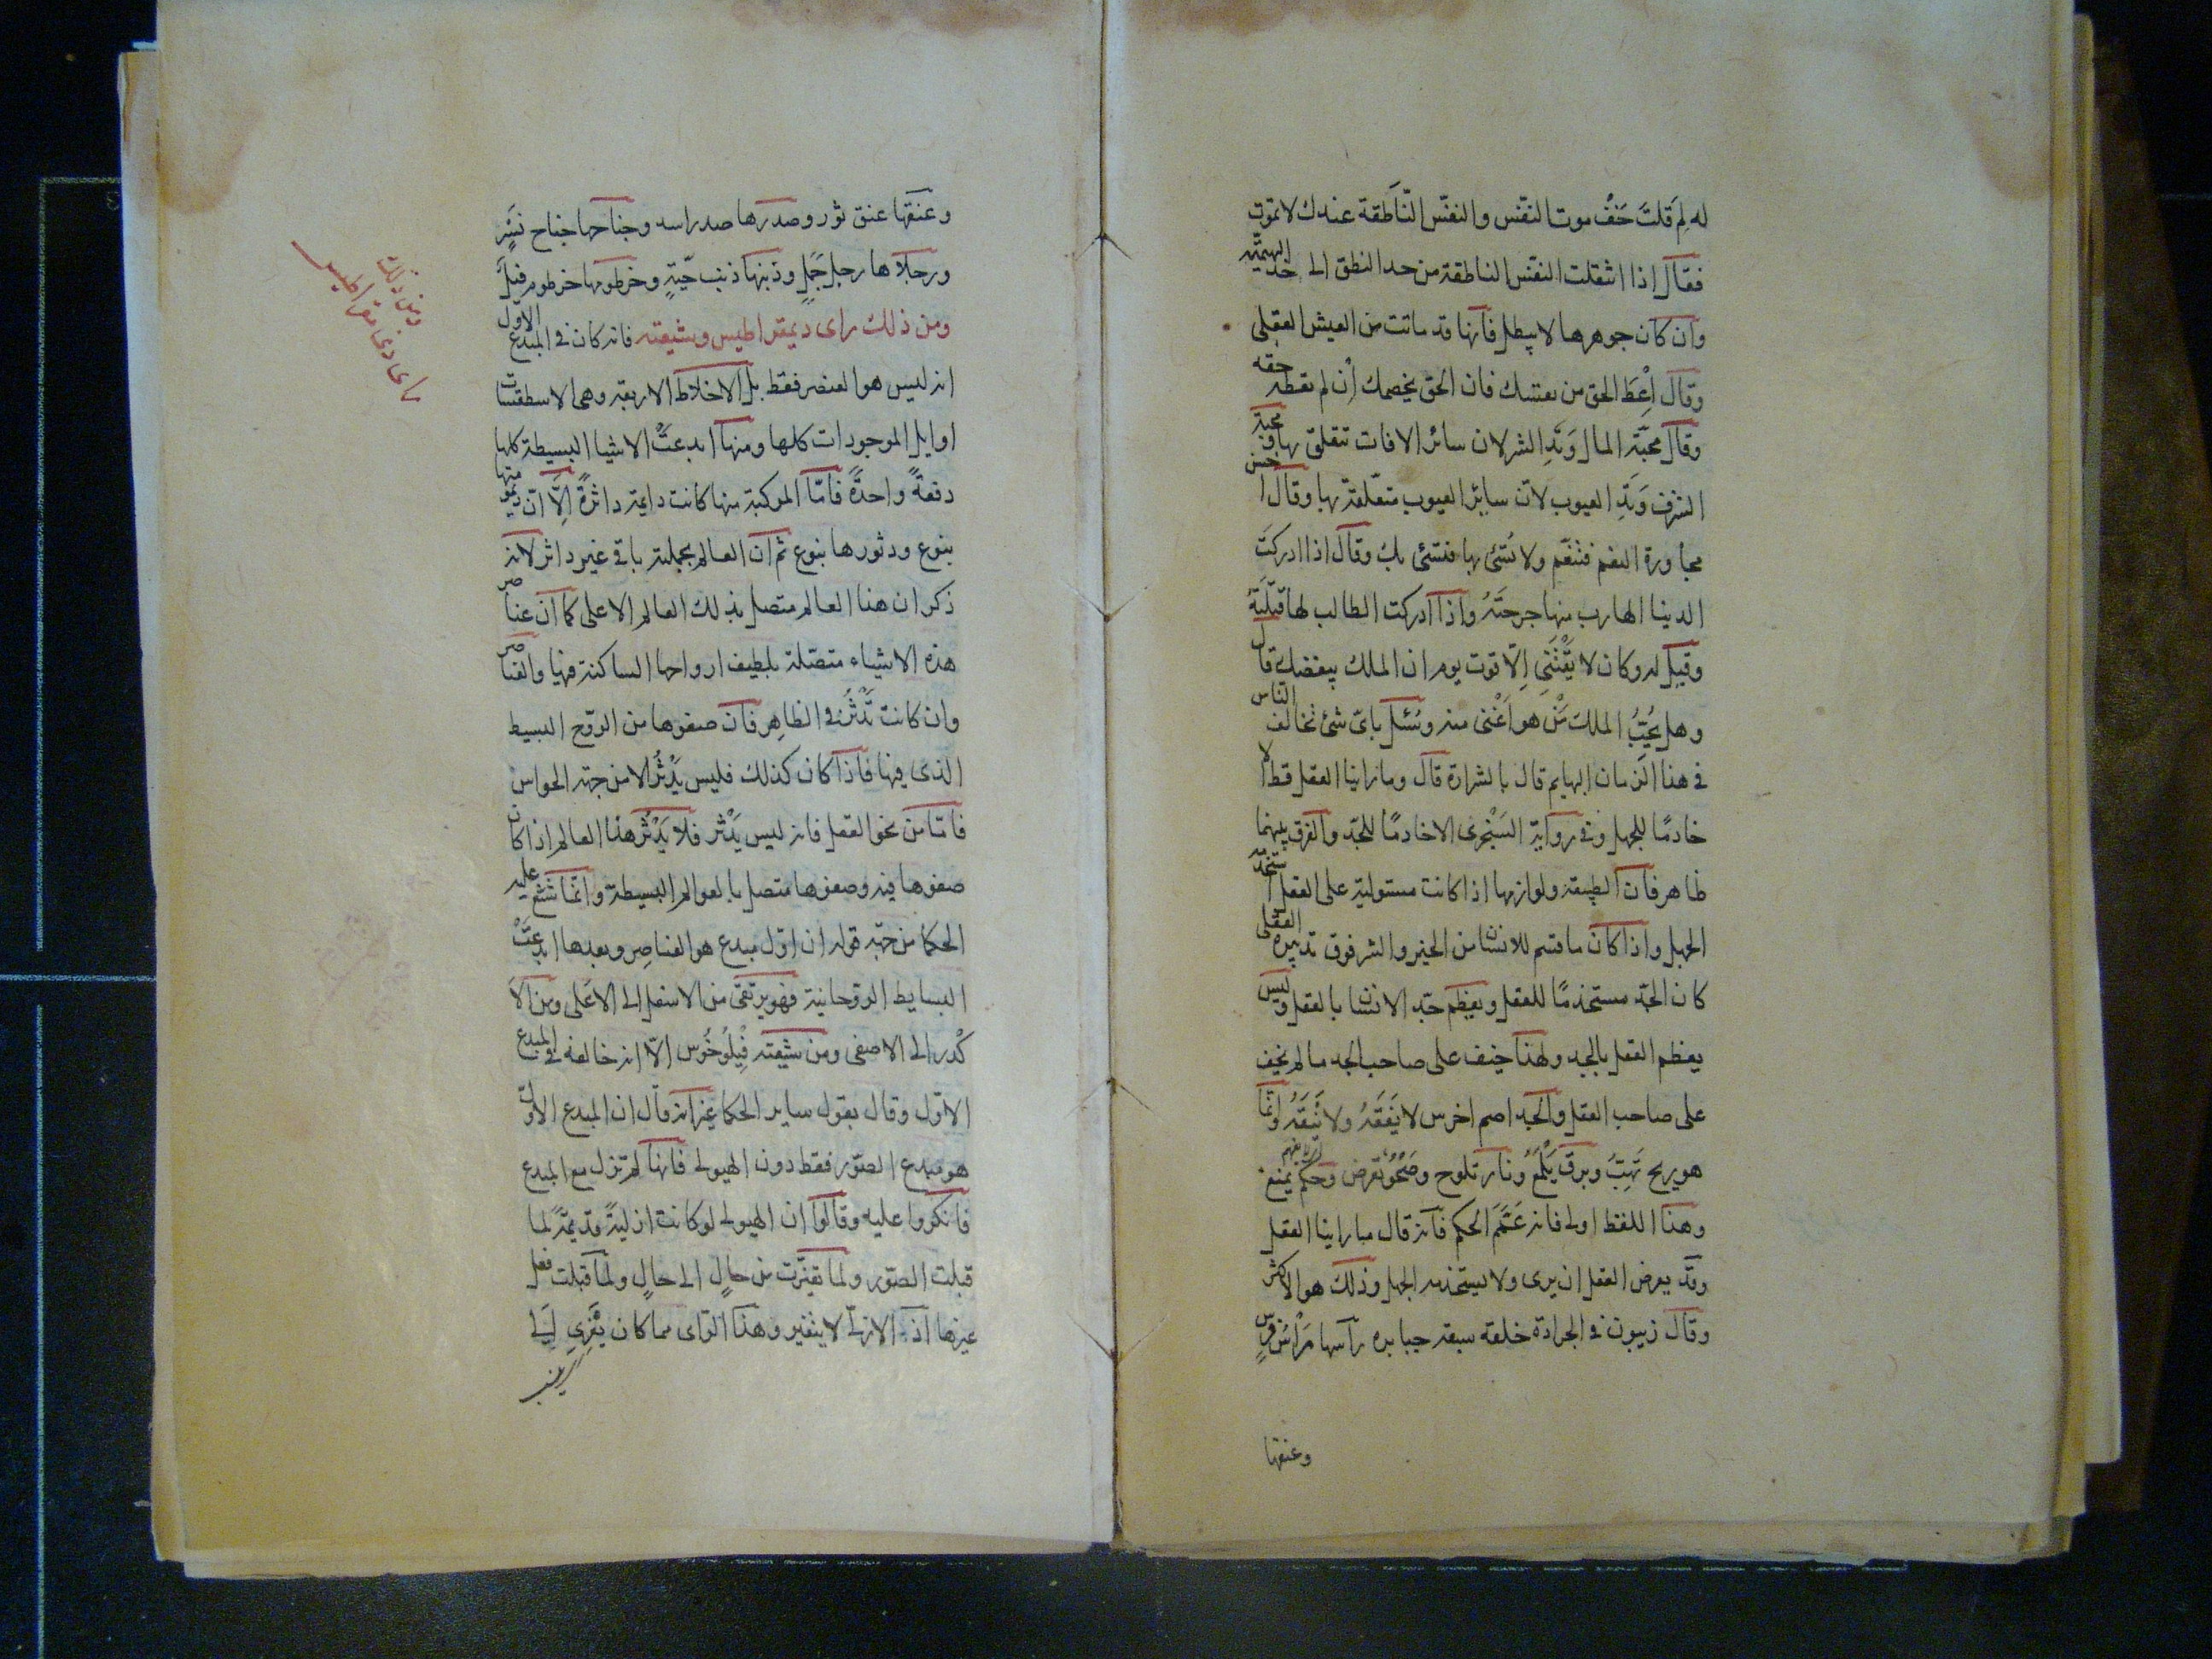 له لِمَ قلتَ خَفْ موت النفس والنفس الناطقة عندك لا تموت
فقال اذا انتقلت النفس الناطقة من حد النطق الى حد البهيمية
وان كان جوهرها لا يبطل فانها قد ماتت من العيش العقلى
وقال اعِطَ الحق من نفسك فان الحق يخصمك اِن لم تعطه حقه
وقال محبّة المال وَتَدِ الشر لان سائر الافات تتعلق بها ومحبة
الشرف وَتَدِ العيوب لان ساير العيوب متعلقة بها وقال احسن
مجاورة النعم فتنعّم ولا تُسَئ بها فتسئ بك وقال اذا ادركَت
الدنيا الهارب منها جرحَتَهُ واذا ادركت الطالب لها قتلَتَهُ
وقيل له وكان لا يَقْتَنِى اِلّا قوت يومه ان الملك يبغضك قال
وهل يُحِبُّ الملك مَنْ هو اَغْنى منه وسُئل باىّ شئ تخالف الناس
فى هذا الزمان البهايم قال بالشرارة قال وما راينا العقل قط الا
خادمًا للجهل وفى رواية السَنْجرى الا خادمًا للجدّ والفرق بينهما
ظاهر فان الطبيعة ولوازمها اذا كانت مستولية على العقل استخدمه
الجهل واذا كان ما قسم للانسان من الخير والشر فوق تدبيره العقلى
كان الجدّ مستخدمًا للعقل ويعظم جدّ الانسان بالعقل وليس
يعظم العقل بالجد ولهذا خيف على صاحب الجد ما لم يخف
على صاحب العقل والجد اصم اخرس لا يَفَقَهُ ولا يَنَقَهُ وانّما
هو ريح تَهِبّ وبرق يَلْمَعُ ونار تلوح وصَحْوٌ تعرض وحكم يمنع
وهذا اللفظ اولى فانه عَمَّمَ الحكم فانه قال ما راينا العقل
وقد يعرض العقل ان يرى ولا يستخدمه الجهل وذلك هو الاكثر
وقال زينون فى الجرادة خلقة سبعة جبابره رأسها رَأْسُ فرسٍ
وعنقها
وعنقها عنق ثور وصدرها صدر اسد وجناحها جناح نَسْرٍ
ورجلاها رجل جَمَلٍ وذنبها ذنب حيّةٍ وخرطومها خرطوم فيلٍ
ومن ذلك راى ديمقراطيس وشيعته فانه كان فى المبدع الاوّل
انه ليس هو العنصر فقط بل الاخلاط الاربعة وهى الاسطقسات
اوايل الموجودات كلها ومنها ابدعَتْ الاشيا البسيطة كلها
دفعةً واحدةً فامّا المركبة منها كانت دايمة داثرةً اِلّا انّ ديمومتها
بنوع ودثورها بنوع ثم ان العالم بجملته باقى غير داثر لانه
ذكر ان هذا العالم متصل بذلك العالم الاعلى كما ان عناصر
هذه الاشياء متصلة بلطيف ارواحها الساكنة فيها والعناصر
وان كانت تَدْثُرُ فى الظاهِر فان صفوها من الروّح البسيط
الذى فيها فاذا كان كذلك فليس يَدْثُرُ الا من جهة الحواس
فامّا من نحو العقل فانه ليس يَدْثر فلا يَدْثُر هذا العالم اذا كان
صفوها فيه وصفوها متصل بالعوالم البسيطة وانّما شنّع عليه
الحكما من جهة قوله ان اوّل مبدع هو العناصِر وبعدها ابدعَتْ
البسايط الروّحانية فهو يرتقى من الاسفل الى الاعلى ومن الا
كْدر الى الاصفى ومن شيعته فِيْلُوخُوس الّا انه خالفه فى المبدع
الاوّل وقال بقول ساير الحكما غير انه قال ان المبدع الاوّل
هو مبدع الصوّر فقط دون الهيولى فانها لم تزل مع المبدع
فانكروا عليه وقالوا ان الهيولى لو كانت ازليةً قديمةً لما
قبلت الصوّر ولما تغيّرت من حالٍ الى حالٍ ولما قبلت فعل
غيرها اذ الازلىّ لا يتغير وهذا الرّاى مما كان يُعْزِى اِلَى
ومن ذلك
راى ديمقراطيس